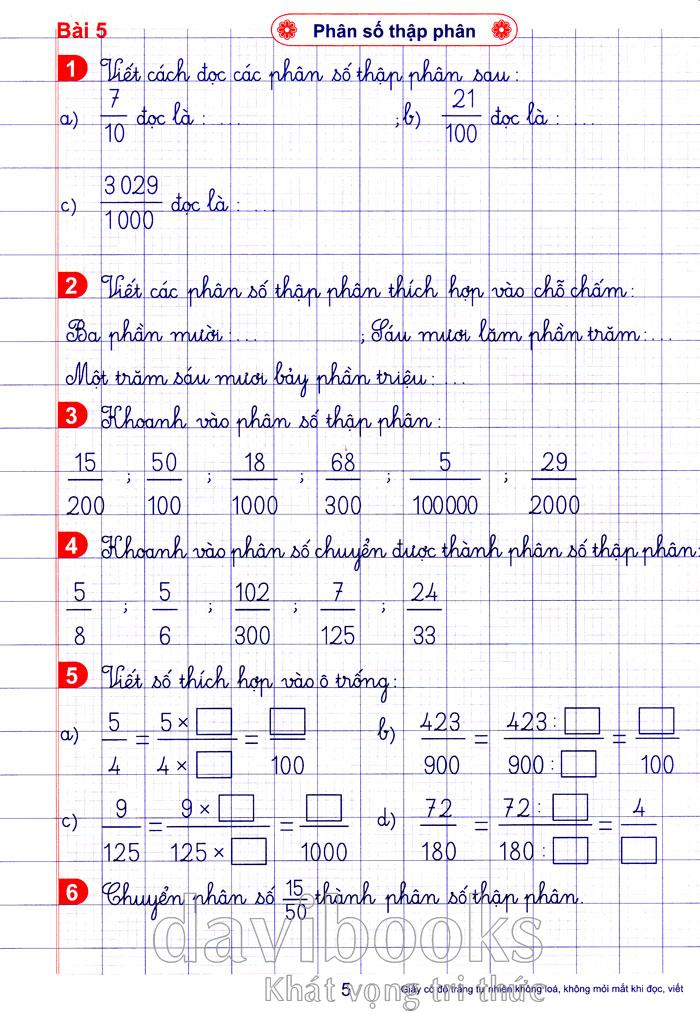 Bài 5
Phân số thập phân
1 Viết cách đọc các phân số thập phân sau :
a) 7/10 đọc là : .... ; b) 21/100 đọc là : ....
c) 3 029/1 000 đọc là : ....
2 Viết các phân số thập phân thích hợp vào chỗ chấm :
Ba phần mười : ... ; Sáu mươi lăm phần trăm : ...
Một trăm sáu mươi bảy phần triệu : ...
3 Khoanh vào phân số thập phân :
15/200 ; 50/100 ; 18/1000 ; 68/300 ; 5/100000 ; 29/2000
4 Khoanh vào phân số chuyển được thành phân số thập phân :
5/8 ; 5/6 ; 102/300 ; 7/125 ; 24/33
5 Viết số thích hợp vào ô trống :
a) 5/4 = 5 × □/4 × □ = □/100 b) 423/900 = 423 : □/900 : □ = □/100
c) 9/125 = 9 × □/125 × □ = □/1000 d) 72/180 = 72 : □/180 : □ = 4/□
6 Chuyển phân số 15/50 thành phân số thập phân.
davibooks
Khát vọng tri thức
5 Giấy có độ trắng tự nhiên không loá, không mỏi mắt khi đọc, viết